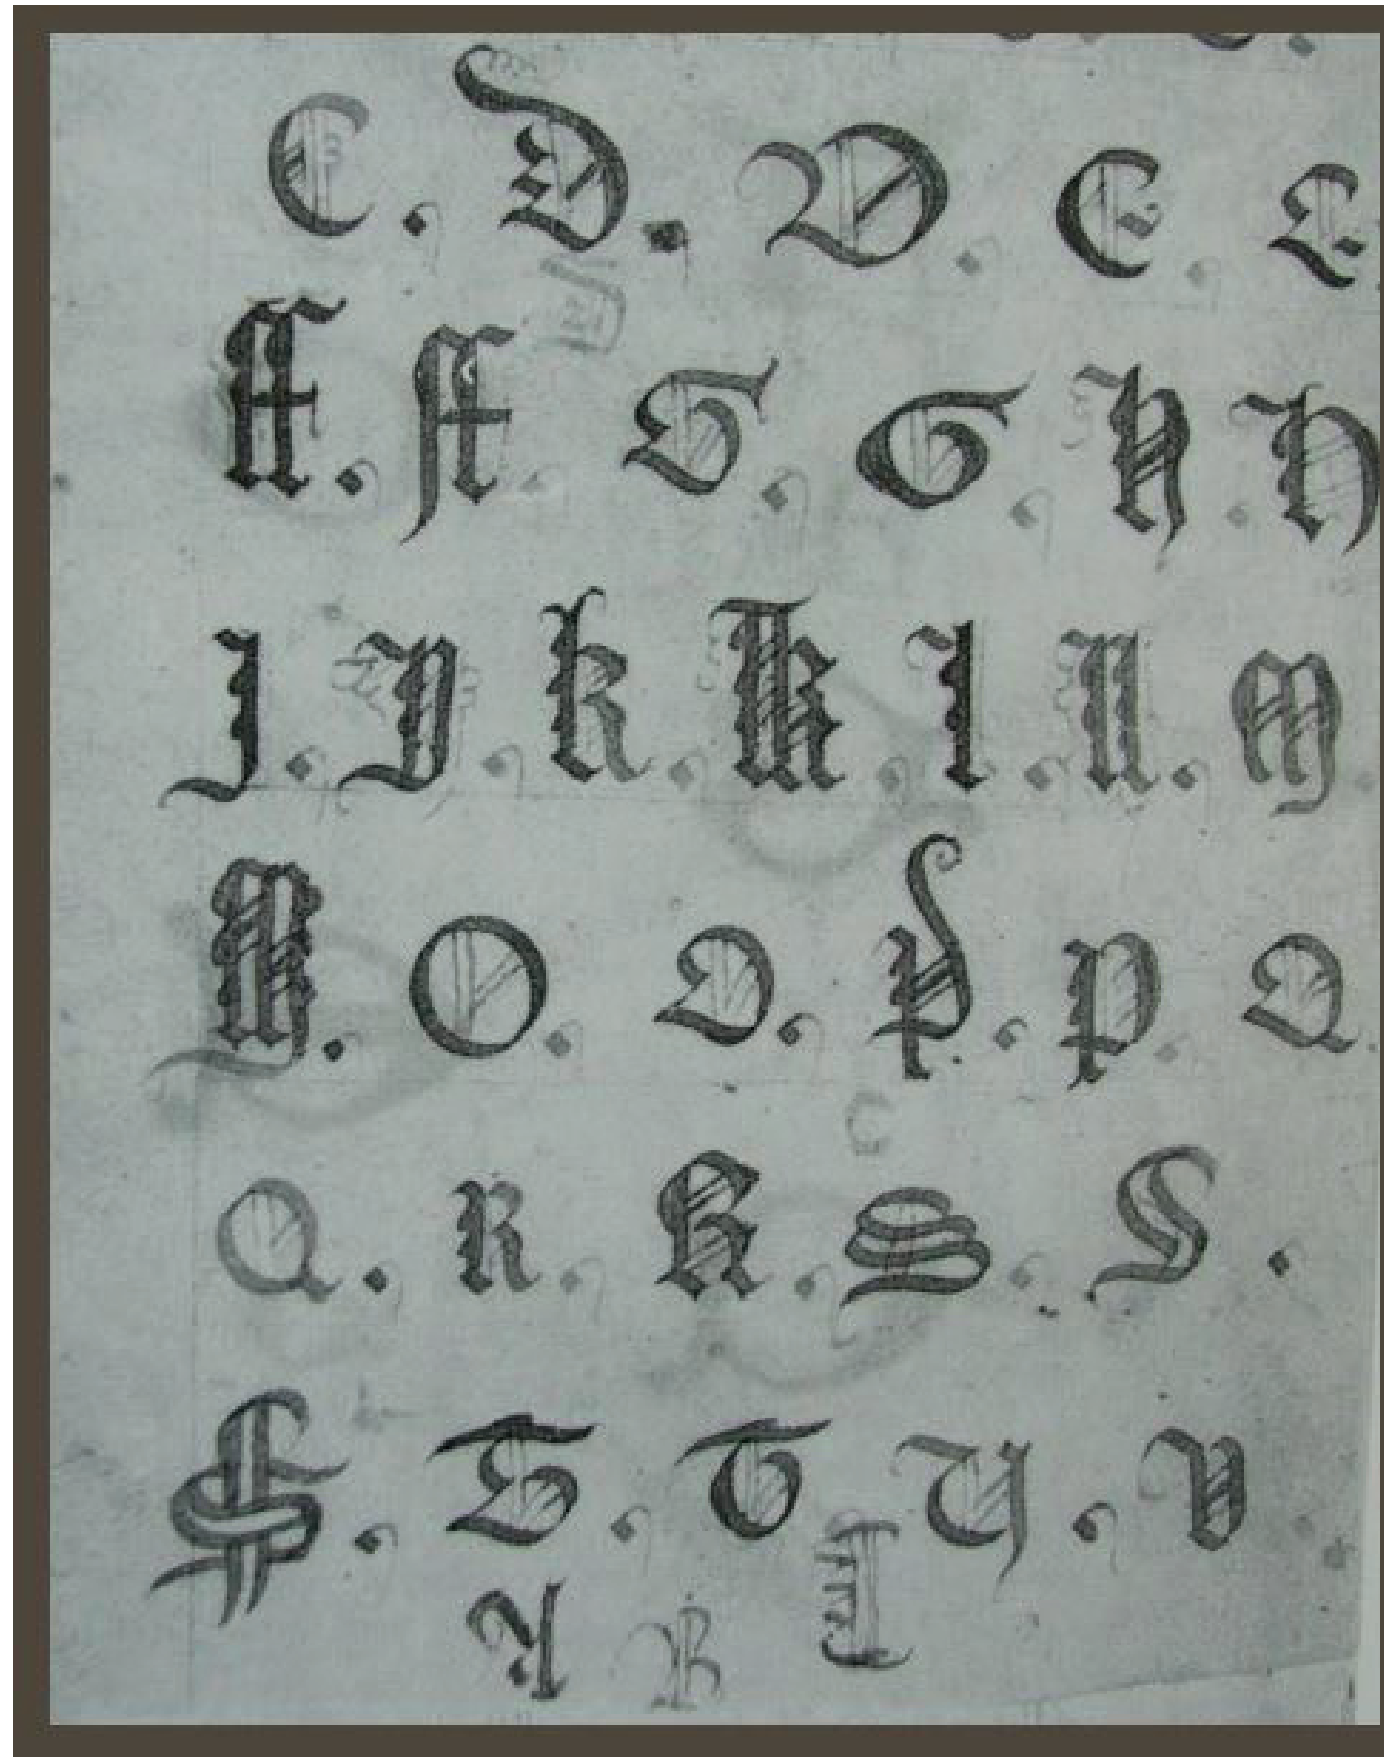 C. D. D. E. E.
ff. ff. G. G. H. H
J. J. k. K. L. L. M.
M. O. O. P. P. Q.
Q. R. R. S. S.
S. T. T. U. V
A R I